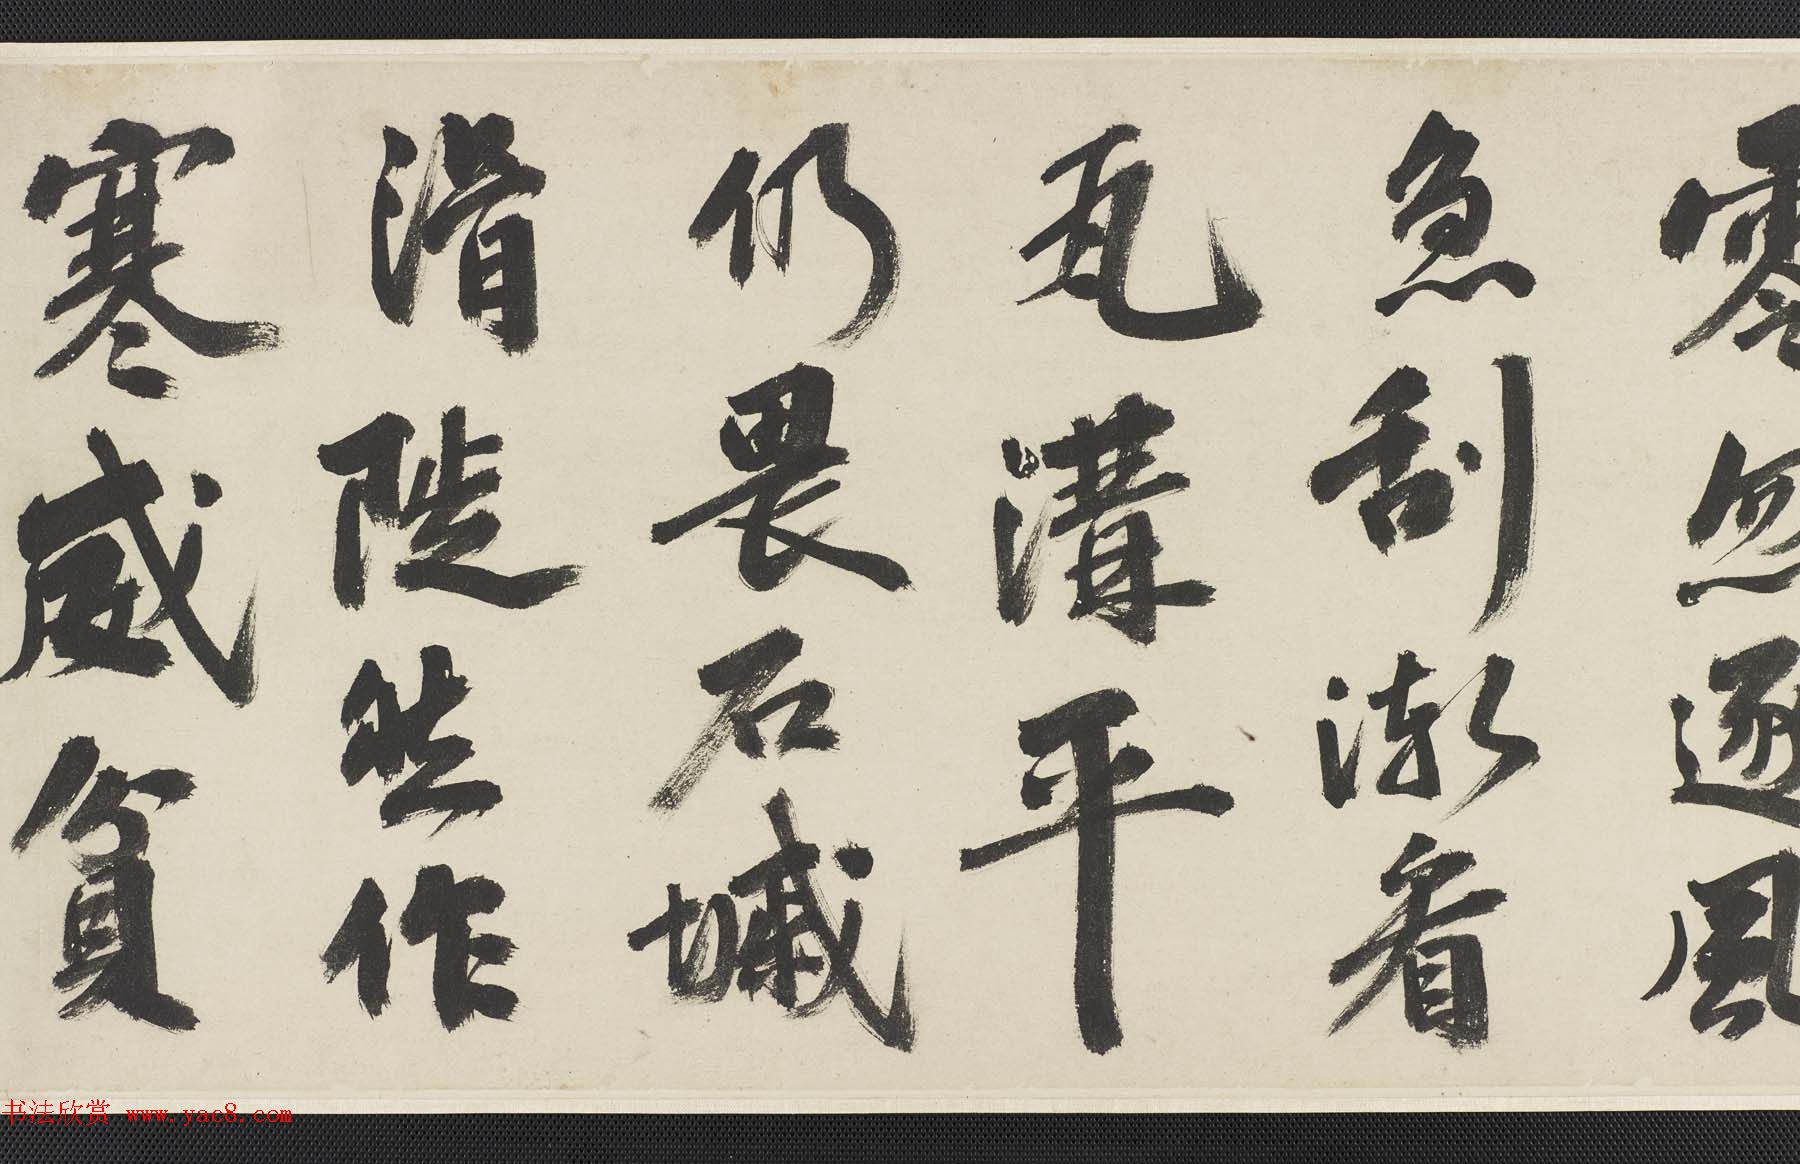 零忽逐風
急刮漸看
瓦溝平
仍畏石墄
滑陡然作
寒威貧
书法欣赏 www.yac8.com